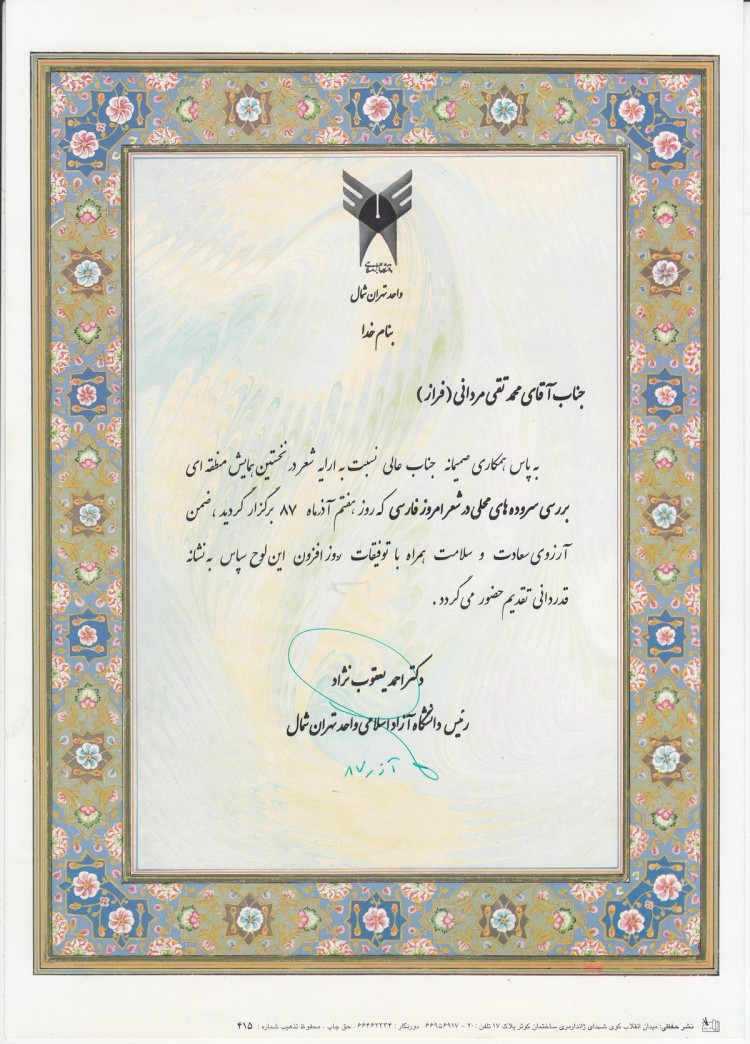 دانشگاه آزاد اسلامی
واحد تهران شمال
بنام خدا
جناب آقای محمد تقی مردانی (فراز)
به پاس همکاری صمیمانه جناب عالی نسبت به ارایه شعر در نخستین همایش منطقه ای
بررسی سروده های محلی در شعر امروز فارسی که روز هفتم آذرماه ۸۷ برگزار گردید، ضمن
آرزوی سعادت و سلامت همراه با توفیقات روز افزون این لوح سپاس به نشانه
قدردانی تقدیم حضور می گردد.
دکتر احمد یعقوب نژاد
رئیس دانشگاه آزاد اسلامی واحد تهران شمال
آذر ۸۷
نشر حفظی: میدان انقلاب کوی شهدای ژاندارمری ساختمان کوثر پلاک ۱۷ تلفن: ۲۰ - ۶۶۹۵۶۹۱۷ دورنگار: ۶۶۴۶۲۳۳۴ . حق چاپ . محفوظ تذهیب شماره: ۴۱۵